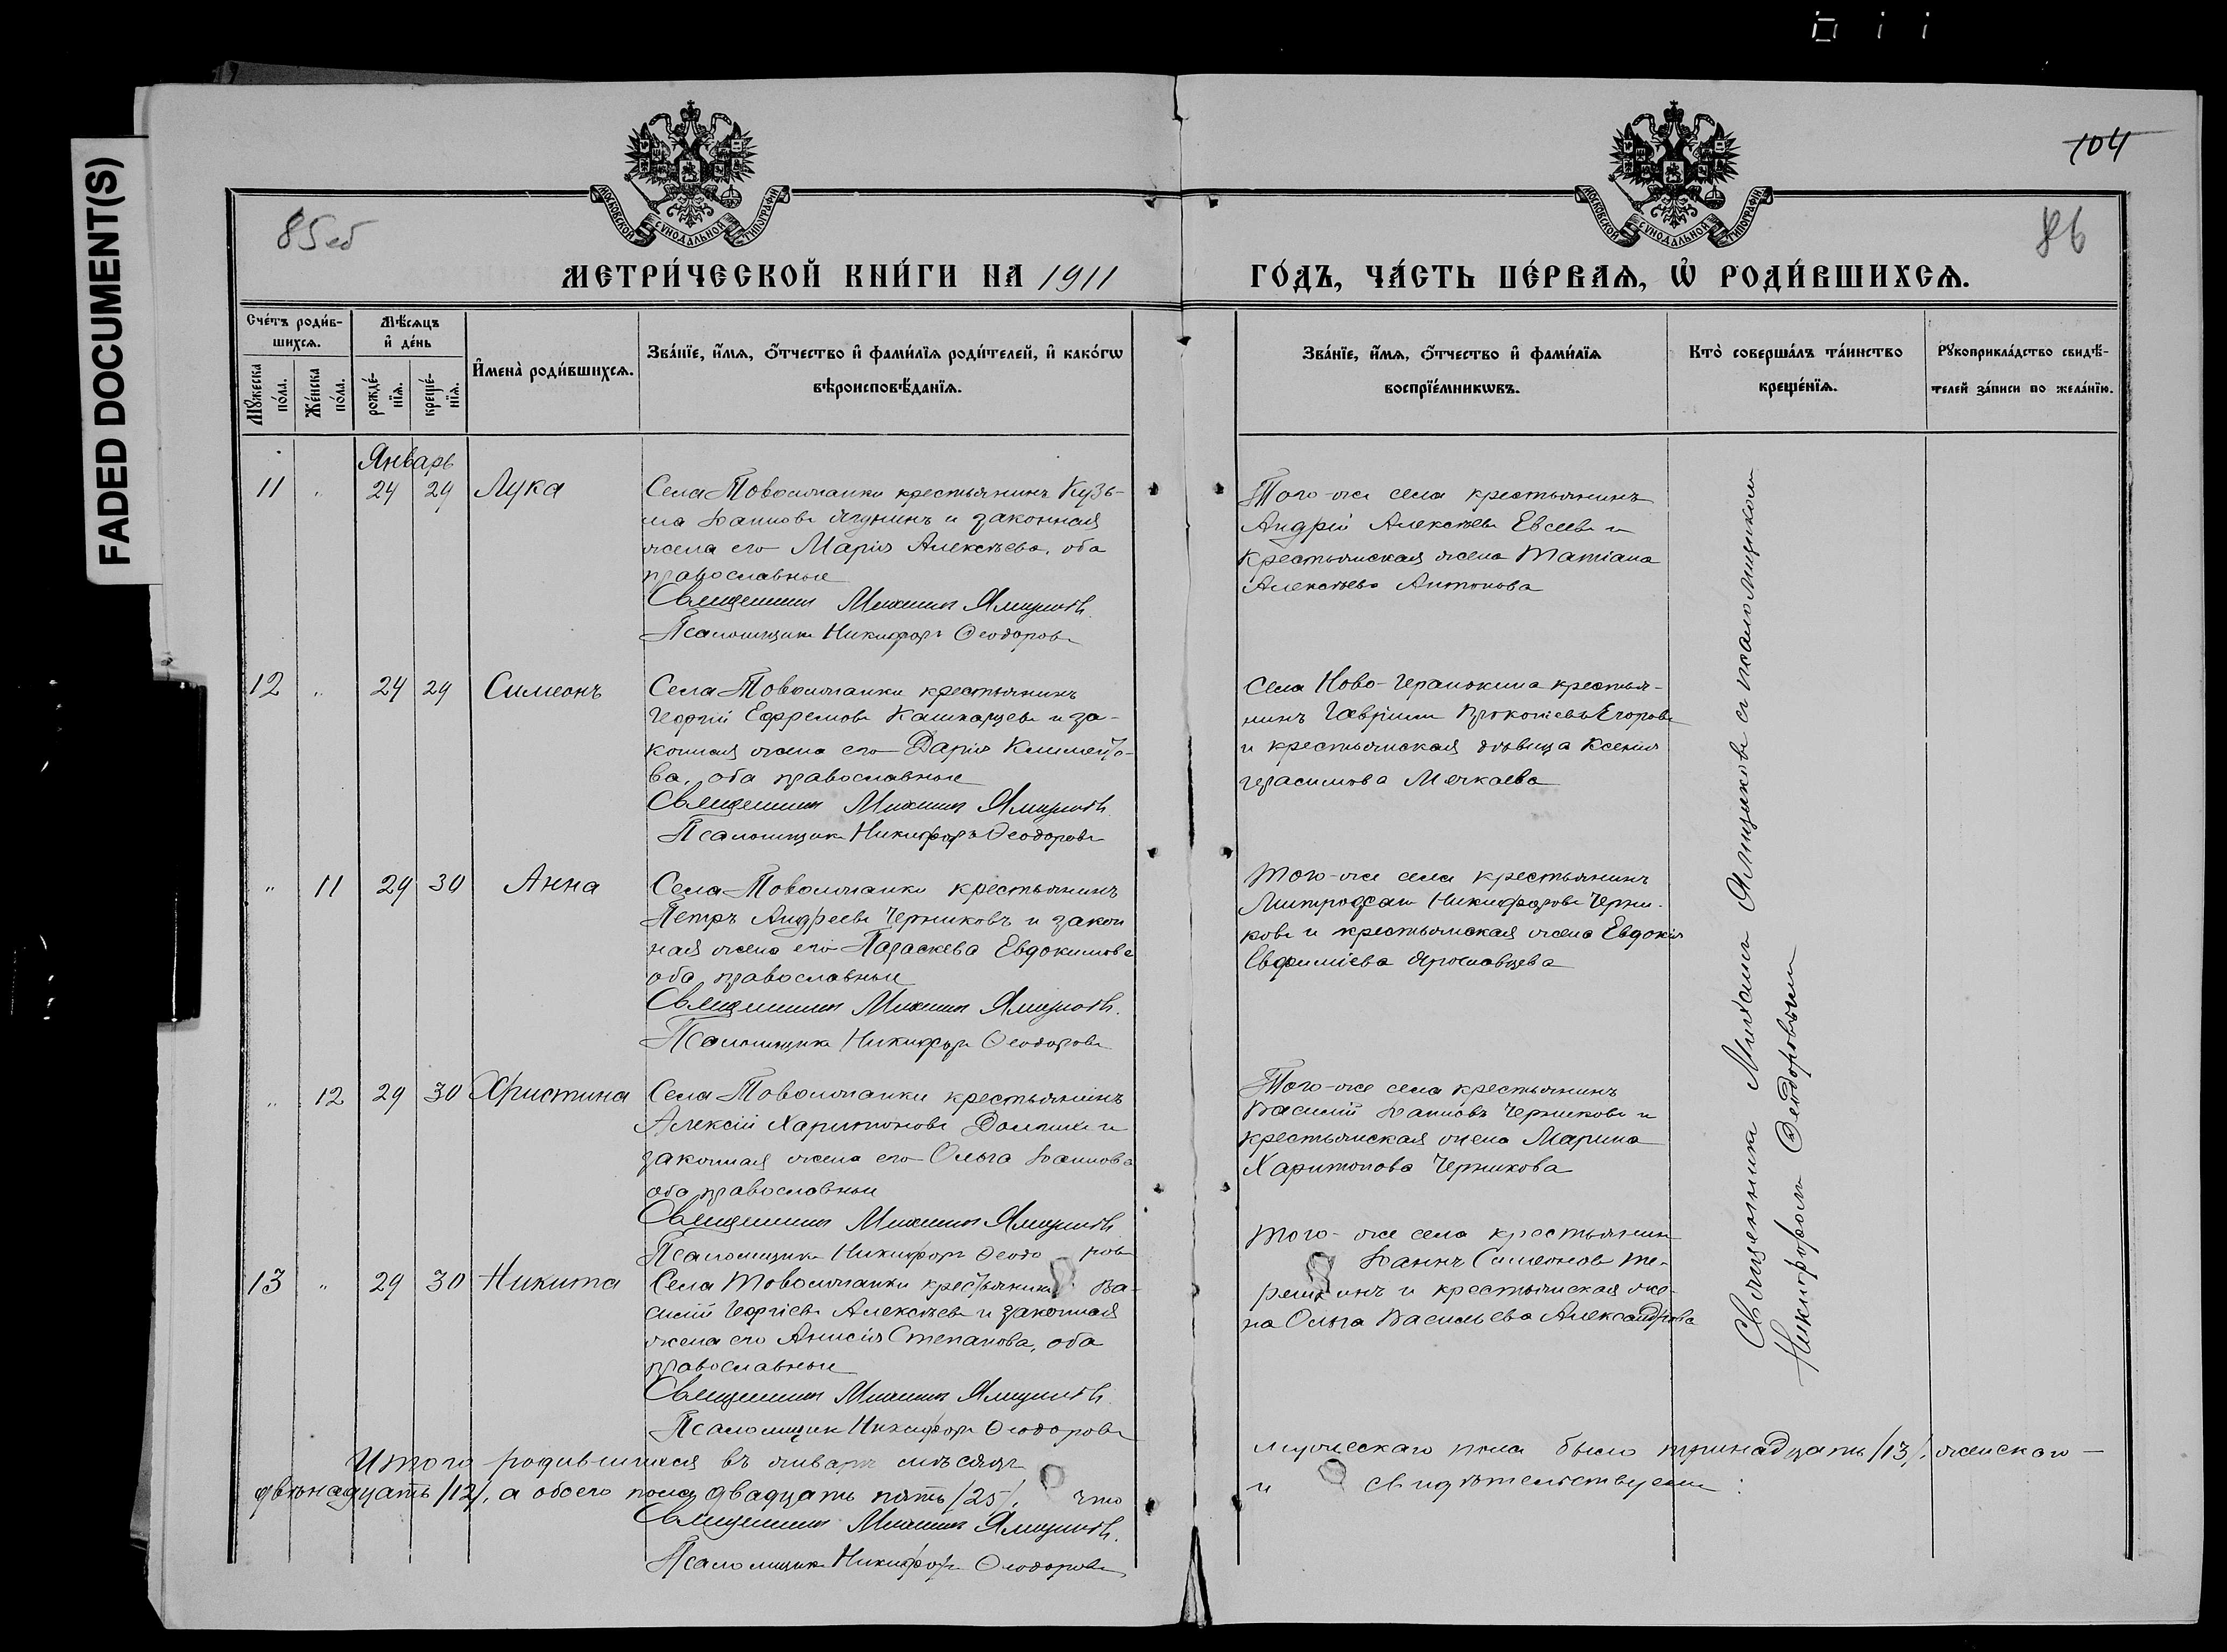 FADED DOCUMENT(S)
104
85об
86
МОСКОВСКОЙ СѴНОДАЛЬНОЙ ТИПОГРАФІИ
МОСКОВСКОЙ СѴНОДАЛЬНОЙ ТИПОГРАФІИ
МЕТРИ́ЧЕСКОЙ КНИ́ГИ НА 1911
ГО́ДЪ, ЧА́СТЬ ПЕ́РВАѦ, Ѡ҆ РОДИ́ВШИХСѦ.
Сче́тъ роди́в-
шихсѧ.
Мꙋ́жеска по́ла.
Же́нска по́ла.
Мѣ́сѧцъ и҆ де́нь
рожде́-нїѧ.
креще́-нїѧ.
И҆мена̀ роди́вшихсѧ.
Зва́нїе, и҆́мѧ, ѻ҆́тчество и҆ фами́лїѧ роди́телей, и҆ како́гѡ
вѣроисповѣ́данїѧ.
Зва́нїе, и҆́мѧ, ѻ҆́тчество и҆ фами́лїѧ
воспрїе́мникѡвъ.
Кто̀ соверша́лъ та́инство
креще́нїѧ.
Рꙋкоприкла́дство свидѣ́-
телей за́писи по жела́нїю.
Январь
11 " 24 29 Лука
Села Товолжанки крестьянинъ Кузь-
ма Іаиновъ Ягунинъ и законная
жена его Марія Алексѣева, оба
православные
Священникъ Михаилъ Ямщиковъ.
Псаломщикъ Никифоръ Ѳеодоровъ
Того-же села крестьянинъ
Андрей Алексѣевъ Евсеевъ и
крестьянская жена Татіана
Алексѣева Антонова
12 " 24 29 Симеонъ
Села Товолжанки крестьянинъ
Георгій Ефремовъ Кашкарцевъ и за-
конная жена его Дарія Климентьо-
ва, оба православные
Священникъ Михаилъ Ямщиковъ.
Псаломщикъ Никифоръ Ѳеодоровъ
Села Ново-Ганькина крестья-
нинъ Гавріилъ Прокопіевъ Егоровъ
и крестьянская дѣвица Ксенія
Герасимова Мячкаева
" 11 29 30 Анна
Села Товолжанки крестьянинъ
Петръ Андреевъ Черниковъ и закон
ная жена его Параскева Евдокимова
оба православные
Священникъ Михаилъ Ямщиковъ.
Псаломщикъ Никифоръ Ѳеодоровъ
Того-же села крестьянинъ
Митрофанъ Никифоровъ Черни-
ковъ и крестьянская жена Евдокія
Евфиміева Ярославцева
" 12 29 30 Христина
Села Товолжанки крестьянинъ
Алексій Харитоновъ и
законная жена его Ольга Іаинова
оба православные
Священникъ Михаилъ Ямщиковъ
Псаломщикъ Никифоръ Ѳеодоровъ
Того-же села крестьянинъ
Василій Черниковъ и
крестьянская жена Марина
Харитонова Черникова
13 " 29 30 Никита
Села Товолжанки крестьянинъ Ва-
силій Георгіевъ Алексѣевъ и законная
жена его Анисія Степанова, оба
православные
Священникъ Михаилъ Ямщиковъ.
Псаломщикъ Никифоръ Ѳеодоровъ
Того-же села крестьянинъ
Іоаннъ Симеоновъ Те-
решкинъ и крестьянская же-
на Ольга Васильева Александрова
Священникъ Михаилъ Ямщиковъ съ псаломщикомъ
Никифоромъ Ѳеодоровымъ
Итого родившихся въ январѣ мѣсяцѣ мужескаго пола было тринадцать /13/, женскаго —
двѣнадцать /12/, а обоего пола двадцать пять /25/, что и свидѣтельствуемъ:
Священникъ Михаилъ Ямщиковъ.
Псаломщикъ Никифоръ Ѳеодоровъ